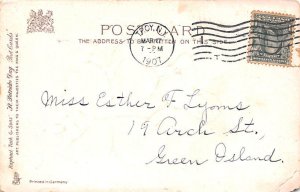 POST CARD
THE ADDRESS TO BE WRITTEN ON THIS SIDE
TROY, N.Y.
MAR 17
7-PM
1907
Raphael Tuck & Sons'
"St. Patrick's Day" Post Cards
ART PUBLISHERS TO THEIR MAJESTIES THE KING & QUEEN
Miss Esther F Lyons
19 Arch St,
Green Island.
Printed in Germany